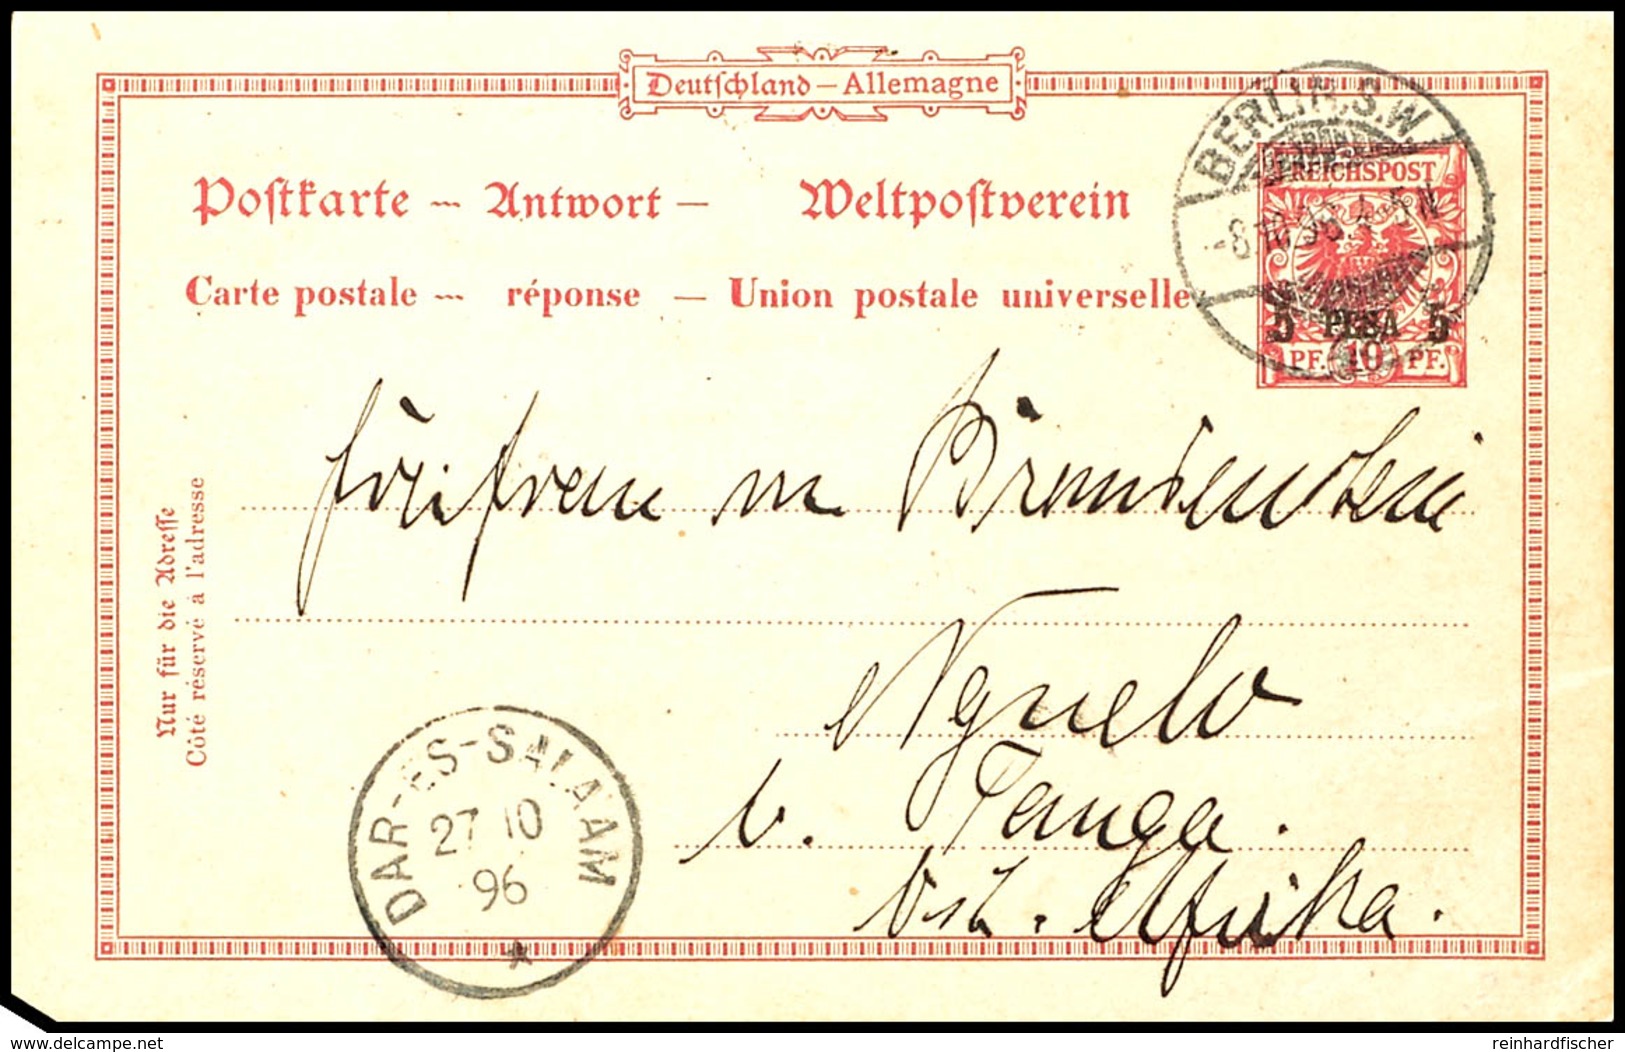 Deutschland – Allemagne
Postkarte — Antwort — Weltpostverein
Carte postale — réponse — Union postale universelle
BERLIN.S.W
-8.10.96.4-5N
REICHSPOST
5 PESA 5
PF. 10 PF.
Nur für die Adresse
Côté réservé à l'adresse
Tanga.
Ost. Afrika.
DAR-ES-SALAAM
27 10
96
delcampe.net
reinhardfischer